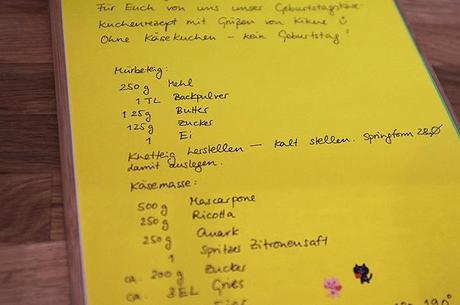 Für Euch von uns unser Geburtstagskäse-
kuchenrezept mit Grüßen von Kikerie
Ohne Käsekuchen – kein Geburtstag!
Mürbeteig:
250 g Mehl
1 TL Backpulver
125 g Butter
125 g Zucker
1 Ei
Knetteig herstellen – kalt stellen. Springform 28∅
damit auslegen.
Käsemasse:
500 g Mascarpone
250 g Ricotta
250 g Quark
1 Spritzer Zitronensaft
ca. 200 g Zucker
ca. 3 EL Gries
190°